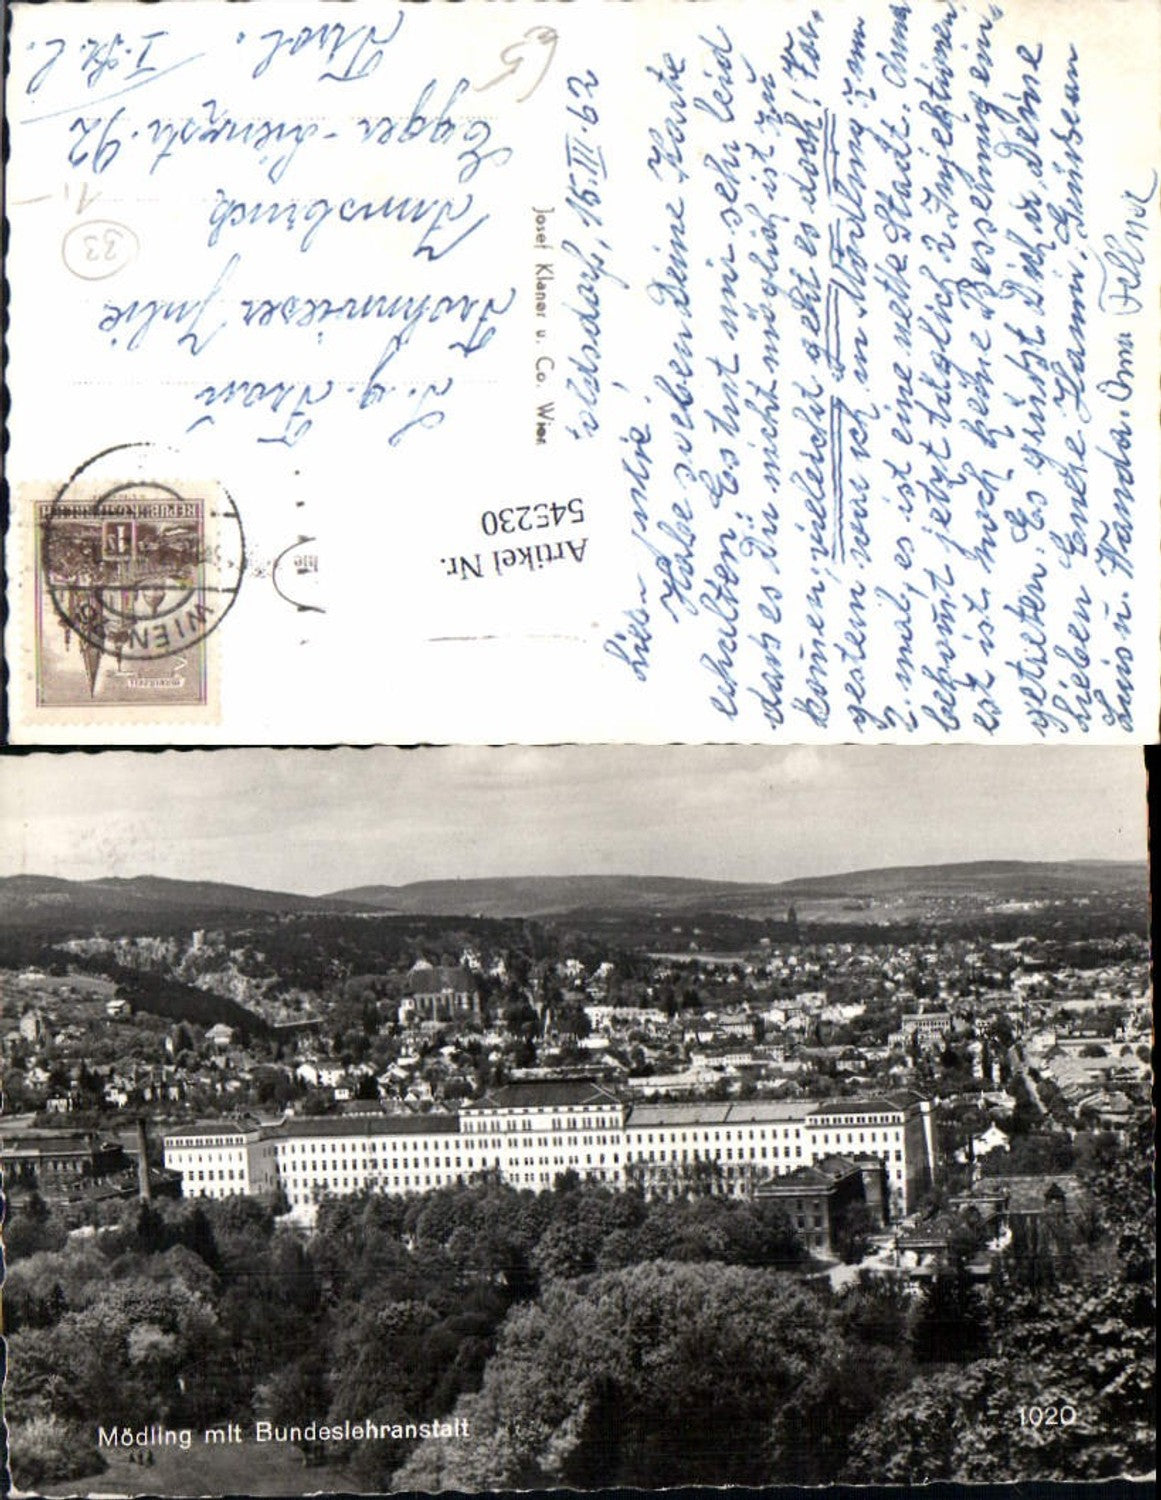 15.III.62
Liebe Julie!
Habe soeben Deine Karte
erhalten. Es tut mir sehr leid
dass es Dir nicht möglich ist zu
kommen, vieleicht geht es doch! Vor-
gestern war ich in Mödling zum
2. mal, es ist eine nette Stadt. Anna
bekommt jetzt täglich 2 Injektionen,
es ist noch keine Besserung ein-
getreten. Es grüsst Dich u. Deine
Lieben Enere Hanni, Gruss an
Luis u. Wanda. Anna
S. g. Frau
Julie
Innsbruck
Egger-Lienzstr. 92
Tirol.
65
33
1,-
Josef Klaner u. Co. Wien
Artikel Nr.
545230
WIEN
REPUBLIK ÖSTERREICH
MARIAZELL
Mödling mit Bundeslehranstalt
1020